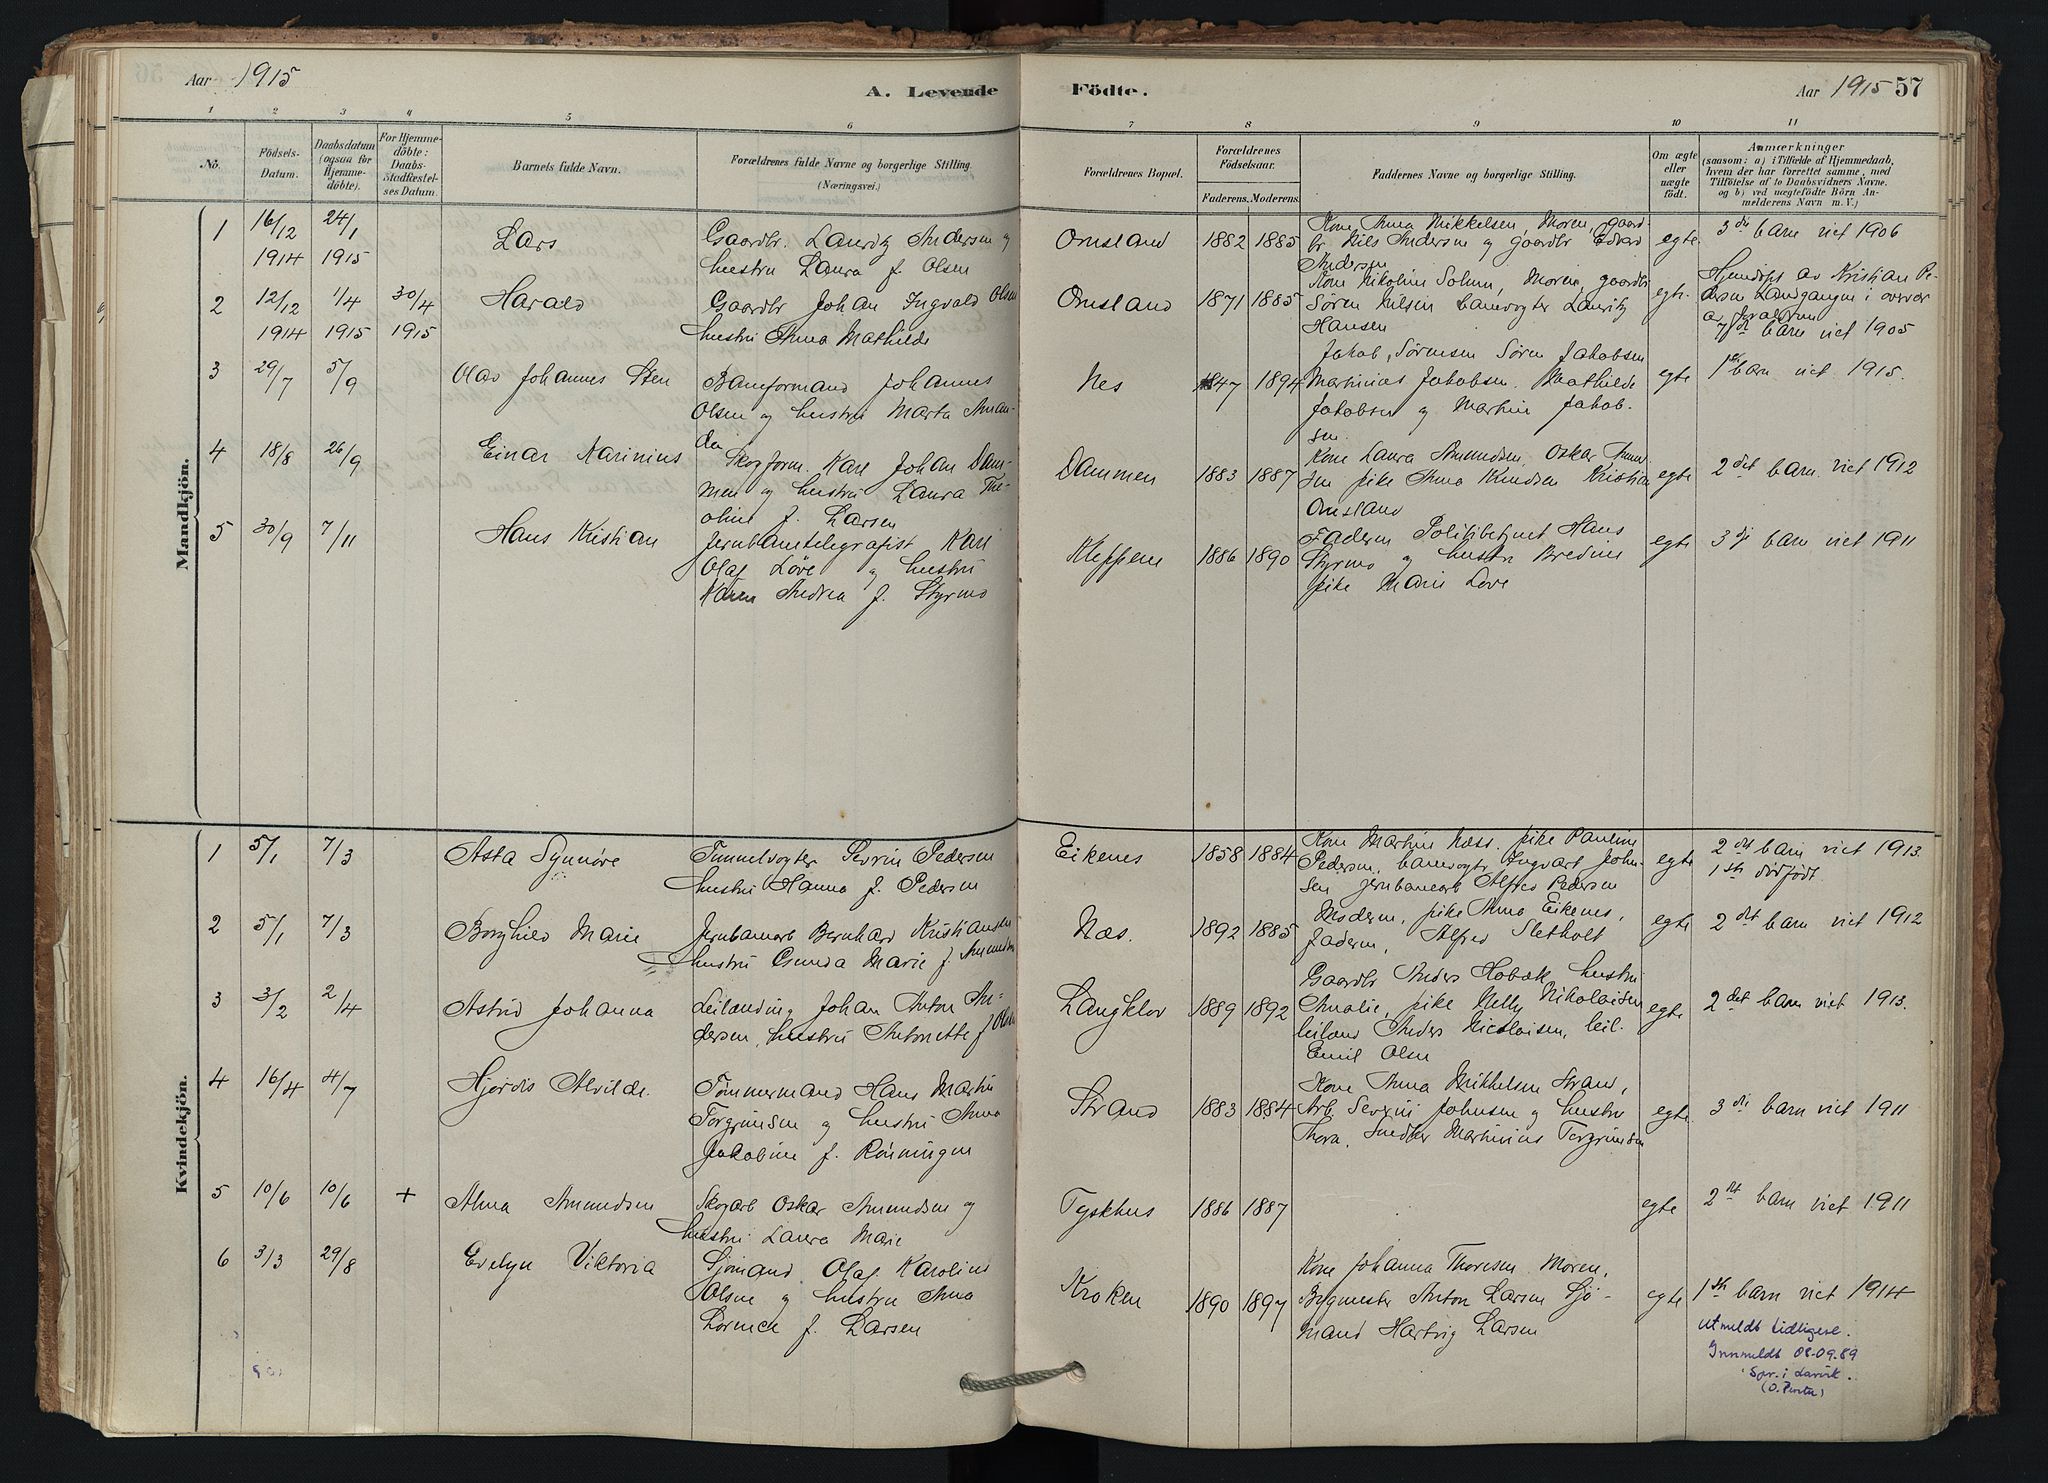 Aar 1915
A. Levende Födte.
Aar 1915 57
1 2 3 4 5 6 7 8 9 10 11
No.
Födsels-Datum.
Daabsdatum (ogsaa for Hjemme-döbte).
For Hjemme-döbte: Daabs-Stadfæstel-ses Datum.
Barnets fulde Navn.
Forældrenes fulde Navne og borgerlige Stilling.
(Næringsvei.)
Forældrenes Bopæl.
Forældrenes Födselsaar.
Faderens. Moderens.
Faddernes Navne og borgerlige Stilling.
Om ægte eller uægte födt.
Anmærkninger
(saasom: a) i Tilfælde af Hjemmedaab, hvem der har forrettet samme, med Tilföielse af to Daabsvidners Navne, og b) ved uægtefödte Börn An-melderens Navn m. V.)
Mandkjön.
1 16/12 1914 24/1 1915 Lars
Gaardbr. Lauritz Andersen og
hustru Laura f. Olsen
Omsland 1882 1885
Kone Anna Mikkelsen, Moren, gaard-
br Nils Andersen og gaardbr Edvard
Andersen
egte 3die barn viet 1906
2 12/12 1914 1/4 1915 30/4 1915 Harald
Gaardbr Johan Ingvald Olsen
hustru Anna Mathilde
Omsland 1871 1885
Kone Nikoline Solum, Moren, gaardbr
Søren Nilsen banevogter Lauritz
Hansen
egte
Hjemdøpt av Kristian Pe-
dersen Landgangen i overvær
av
7de barn viet 1905
3 29/7 5/9 Olav Johannes Sten
Baneformand Johannes
Olsen og hustru Marta Aman-
da
Nes 1847 1894
Jakob Sørensen Søren Jakobsen
Martinius Jakobsen. Mathilde
Jakobsen og Martin Jakob-
sen.
egte 1ste barn viet 1915.
4 18/8 26/9 Einar Marinius
Skogform. Karl Johan Dam-
men og hustru Laura The-
oline f. Larsen
Dammen 1883 1887
Kone Laura Amundsen, Oskar Amund-
sen pike Anna Knudsen Kristian
Omsland
egte 2det barn viet 1912
5 30/9 7/11 Hans Kristian
Jernbanetelegrafist Karl
Olaf Løve og hustru
Karen Andrea f. Styrmo
Kleppen 1886 1890
Faderen Politibetjent Hans
Styrmo og hustru Bredine
pike Marie Løve
egte 3dj barn viet 1911
Kvindekjön.
1 5/1 7/3 Asta Synnøve
Tunnelvogter Sevrin Pedersen
hustru Hanna f. Pedersen
Eikenes 1858 1884
Kone Martin Næss. pike Pauline
Pedersen, banevogter Ingvart John-
sen jernbanearb Alfred Pedersen
egte 2det barn viet 1913.
1ste dødfødt.
2 5/1 7/3 Borghild Marie
Jernbanearb Bernhard Kristiansen
hustru Gunda Marie f Amundsen
Næs. 1892 1885
Moderen, pike Anna Eikenes,
Faderen, Alfred Sletholt
egte 2det barn viet 1912
3 3/2 2/4 Astrid Johanna
Leilænding Johan Anton An-
dersen, hustru Antonette f Olsen
Langklov 1889 1892
Gaardbr Anders Hobæk, hustru
Amalie, pike Nelly Nikolaisen
leilænd Anders Nicolaisen, leil.
Emil Olsen
egte 2det barn viet 1913.
4 16/4 4/7 Hjørdis Alvilde.
Tømmermand Hans Martin
Torgrimsen og hustru Anna
Jakobine f. Rønningen
Strand 1883 1884
Kone Anna Mikkelsen Strand,
Arb. Severin Johnsen og hustru
Thora, Snedker Martinius Torgrimsen
egte 3die barn viet 1911
5 10/6 10/6 + Alma Amundsen
Skogarb Oskar Amundsen og
hustru Laura Marie
Tyskhus 1886 1887
egte 2det barn viet 1911
6 3/3 29/8 Evelyn Viktoria
Sjømand Olaf Karolius
Olsen og hustru Anna
Lovinda f. Larsen
Kroken 1890 1897
Kone Johanna Thoresen Moren,
Bygmester Anton Larsen Sjø-
mand Hartvig Larsen
egte 1ste barn viet 1914
utmeldt tidligere.
Innmeldt 08-09.89
Spr. i Larvik.